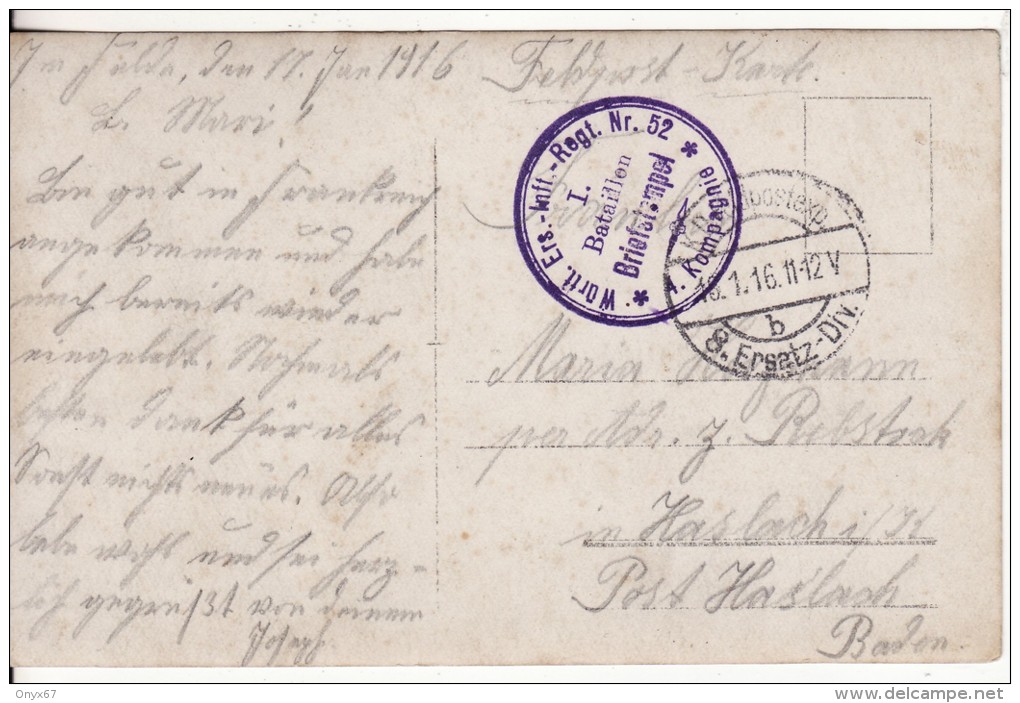 Im Felde, den 17. Jan 1916
L. Mari!
Bin gut in Frankreich
angekommen und habe
mich bereits wieder
eingelebt. Nochmals
besten Dank für alles
Sonst nichts neues. Also
lebe wohl und sei herz-
lich gegrüßt von deinem
Joseph
Feldpost-Karte.
Württ. Ers.-Inft.-Regt. Nr. 52
I.
Bataillon
Briefstempel
1. Kompagnie
K.D. Feldpostexp.
18.1.16.11-12V
b
8. Ersatz-Div.
Maria
per Adr. z. Rebstock
in Haslach i/K
Post Haslach
Baden
Onyx67
delcampe.net